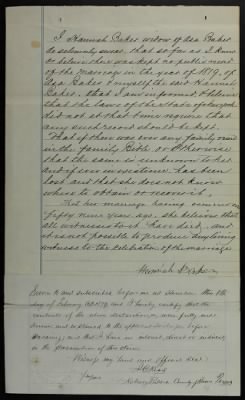 I Hannah Baker widow of Asa Baker
do solemnly swear that so far as I know
or believe there was kept no public record
of the marriage in the year of 1819, of
Asa Baker & myself the said Hannah
Baker, that I am informed & believe
that the laws of the State of
did not at that time require that
any such record should be kept.
That if there was ever any family record
in the family Bible or otherwise
that the same is unknown to her
and if ever in existence has been
lost and that she does not know
where to obtain or recover it,
That her marriage having occurred
fifty nine years ago she believes that
all witnesses to it have died, and
it is not possible to produce any living
witness to the celebration of the marriage
Hannah Baker
Sworn to and subscribed before me at this 8th
day of February A.D. 1879, and I hereby certify that the
contents of the above declaration were fully made
known and explained to the applicant before
swearing; and that I have no interest, direct or indirect,
in the prosecution of this claim.
Witness my hand and official seal
Notary Public County of